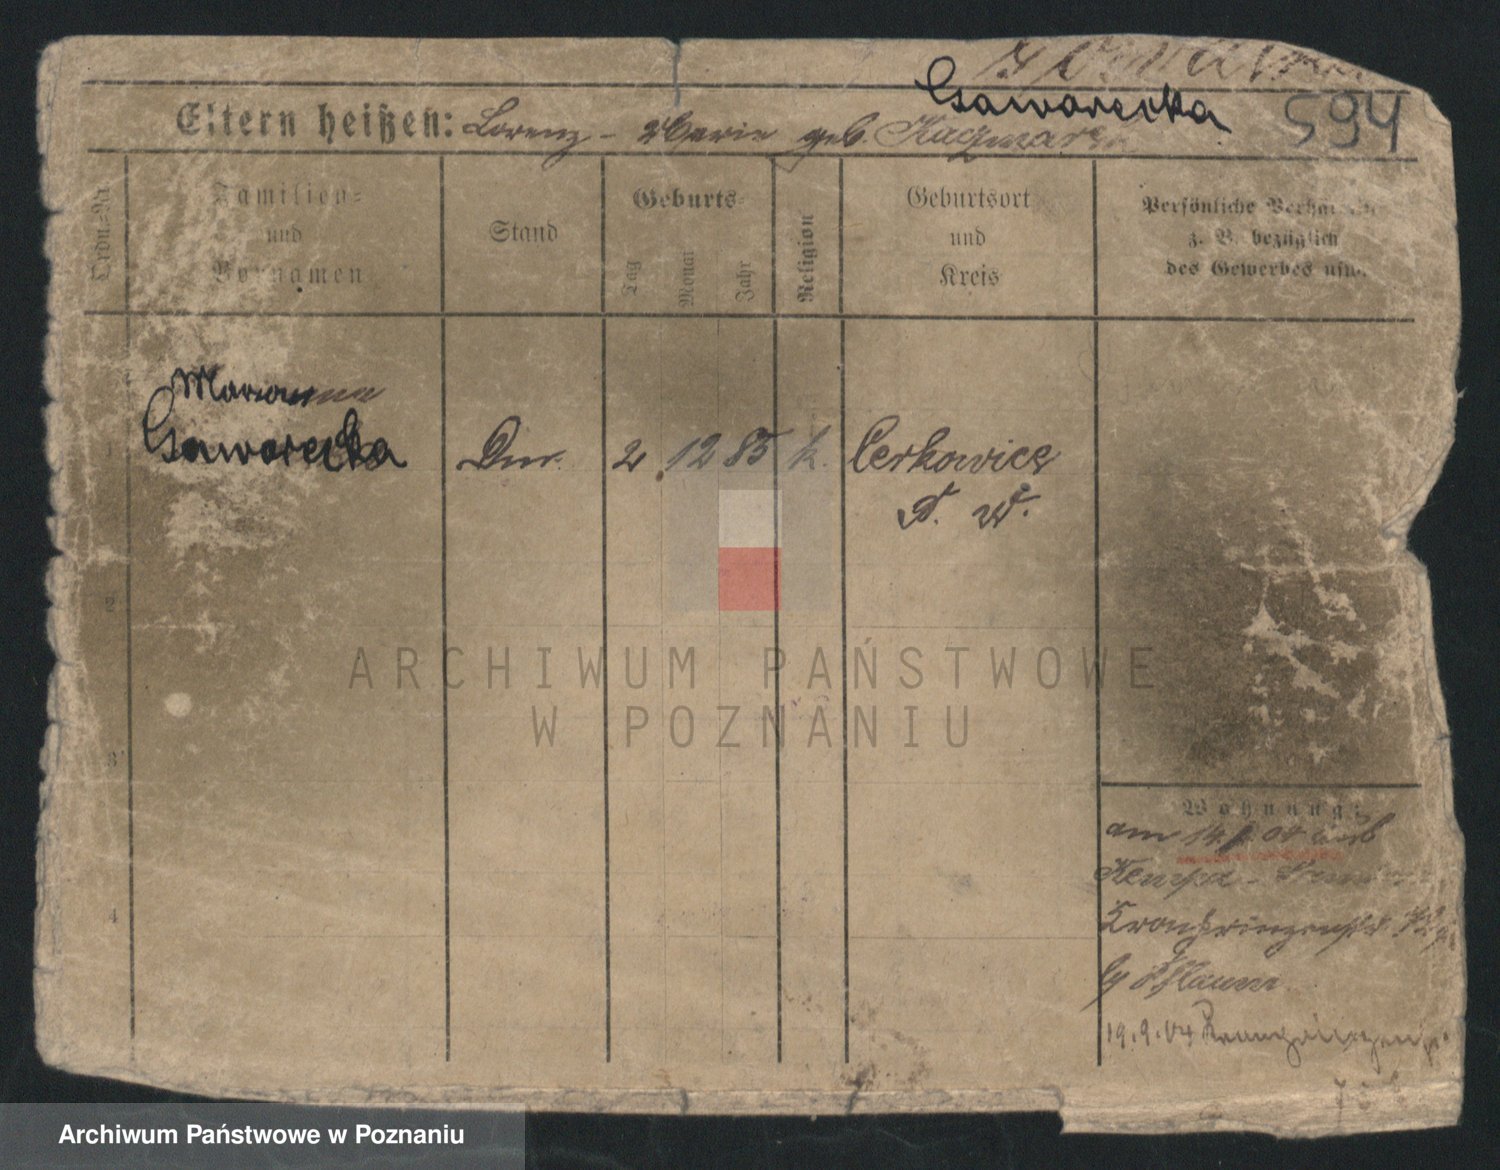 Gaworecka
594
Eltern heißen: Lorenz - Marie geb. Kaczmarek
Ordn.=Nr.
Familien=
und
Vornamen
Stand
Geburts=
Tag
Monat
Jahr
Religion
Geburtsort
und
Kreis
Persönliche Verhältn
z. B. bezüglich
des Gewerbes usw.
Marianna
Gaworecka
1
Dm.
2 12 85
k.
Cerkowice
2
3
4
Wohnung:
am 14. 04
Kronprinzenstr.
by Pflaum
19.9.04
ARCHIWUM PAŃSTWOWE
W POZNANIU
Archiwum Państwowe w Poznaniu